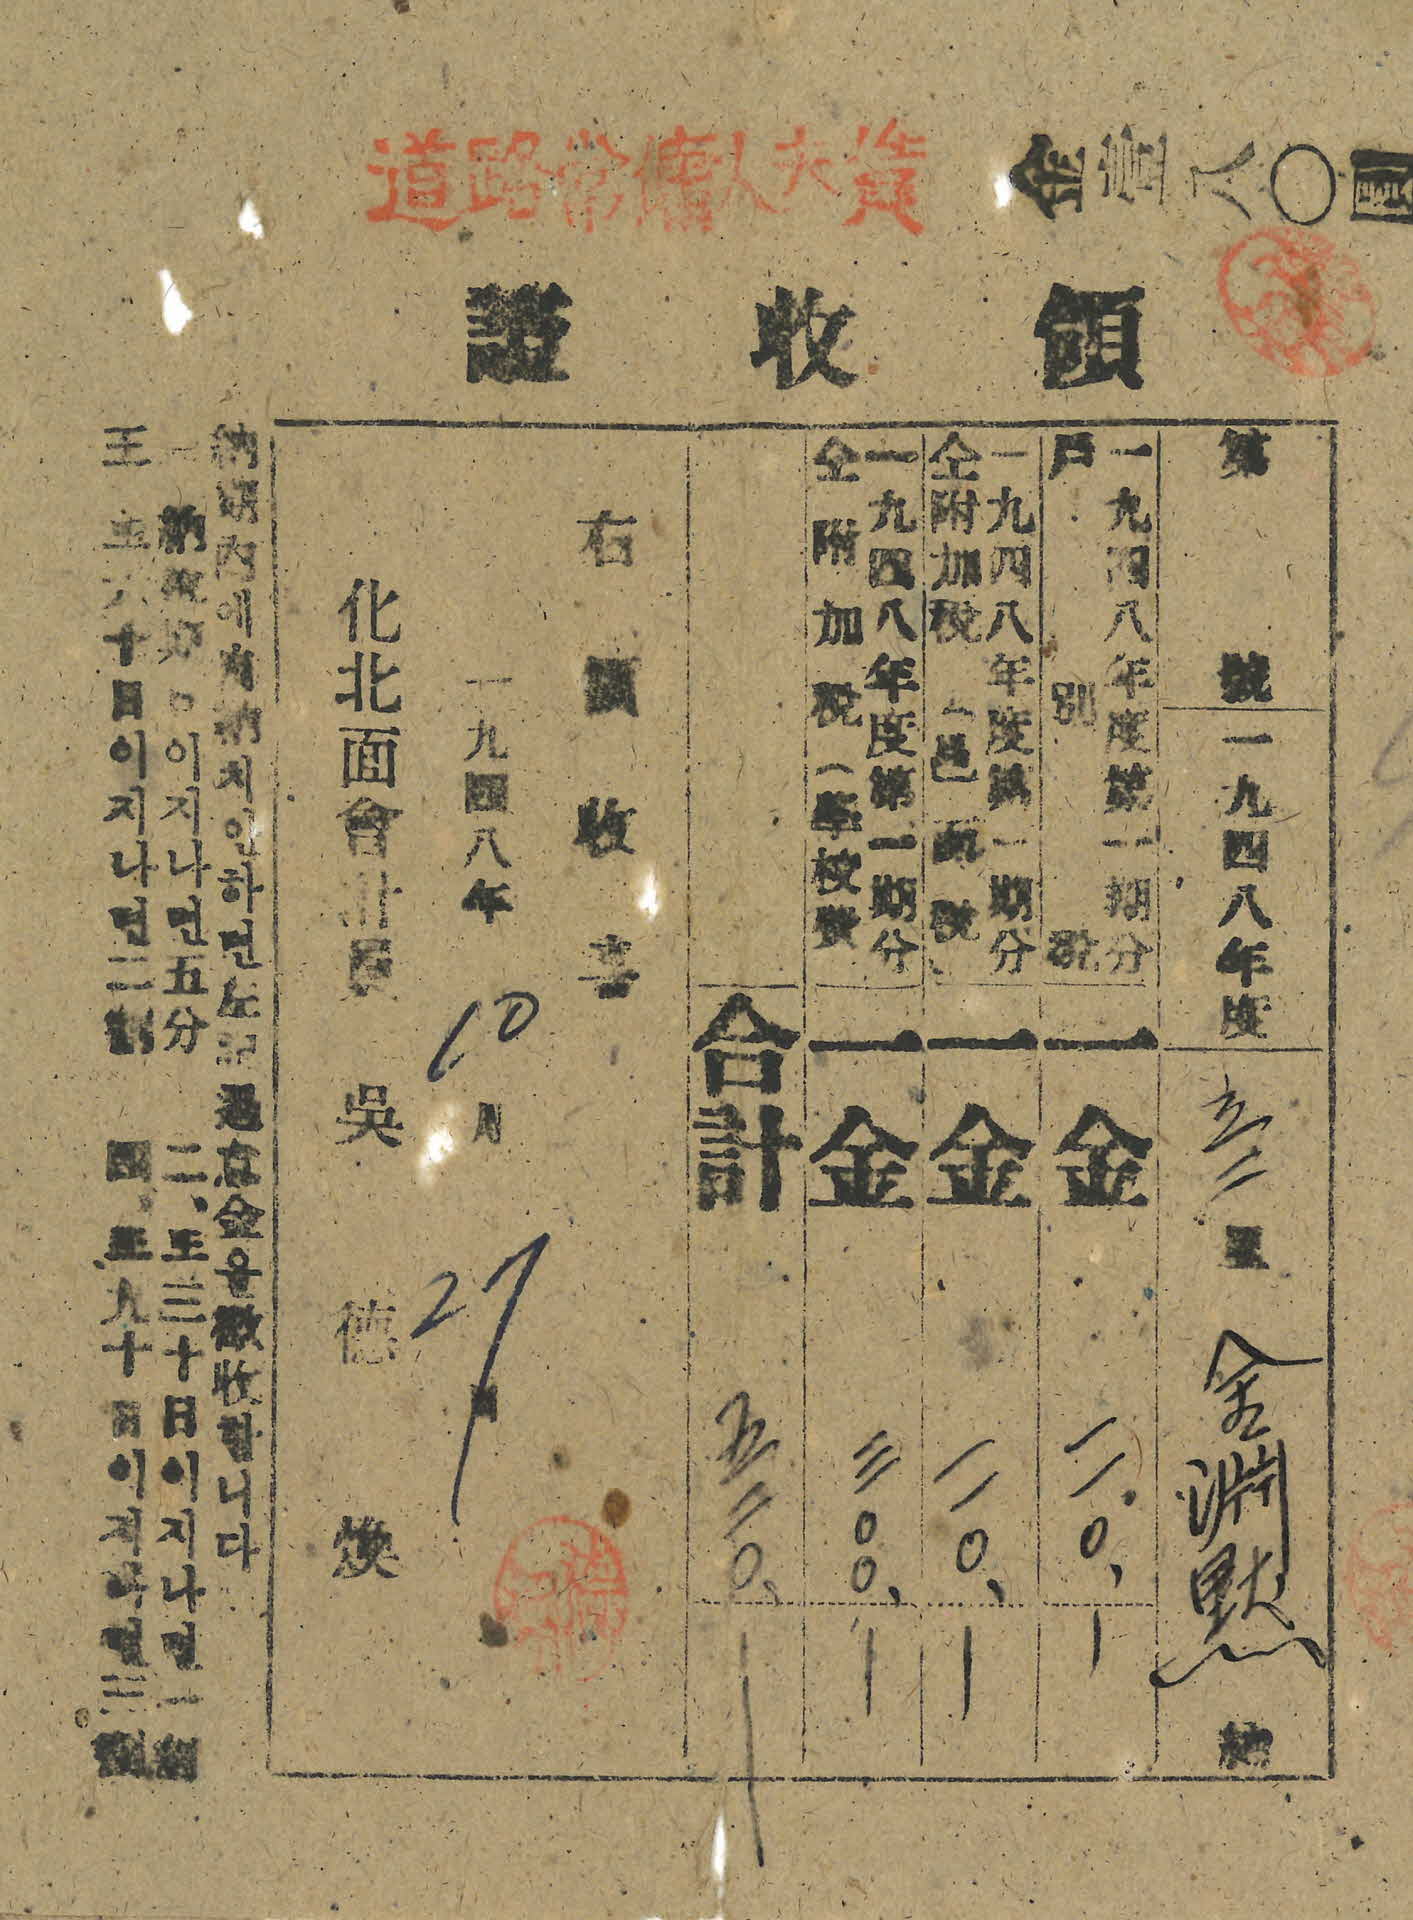 金壹八〇圓
道路常備人夫賃
領收證
第 號 一九四八年度 五二 區 金淵默 納
一九四八年度第一期分
戶別稅 一金 一一〇、
一九四八年度第一期分
仝附加稅(邑面稅) 一金 一一〇、
一九四八年度第一期分
仝附加稅(學校費) 一金 三〇〇、
合計 五二〇、
右領收喜
一九四八年 10月 27日
化北面會計員 吳德煥
納期內에 完納치안하면左記過怠金을徵收합니다
一、納期 이지나면五分 二、至三十日이지나면一割
三、至六十日이지나면二割 四、至九十日이지나면三割